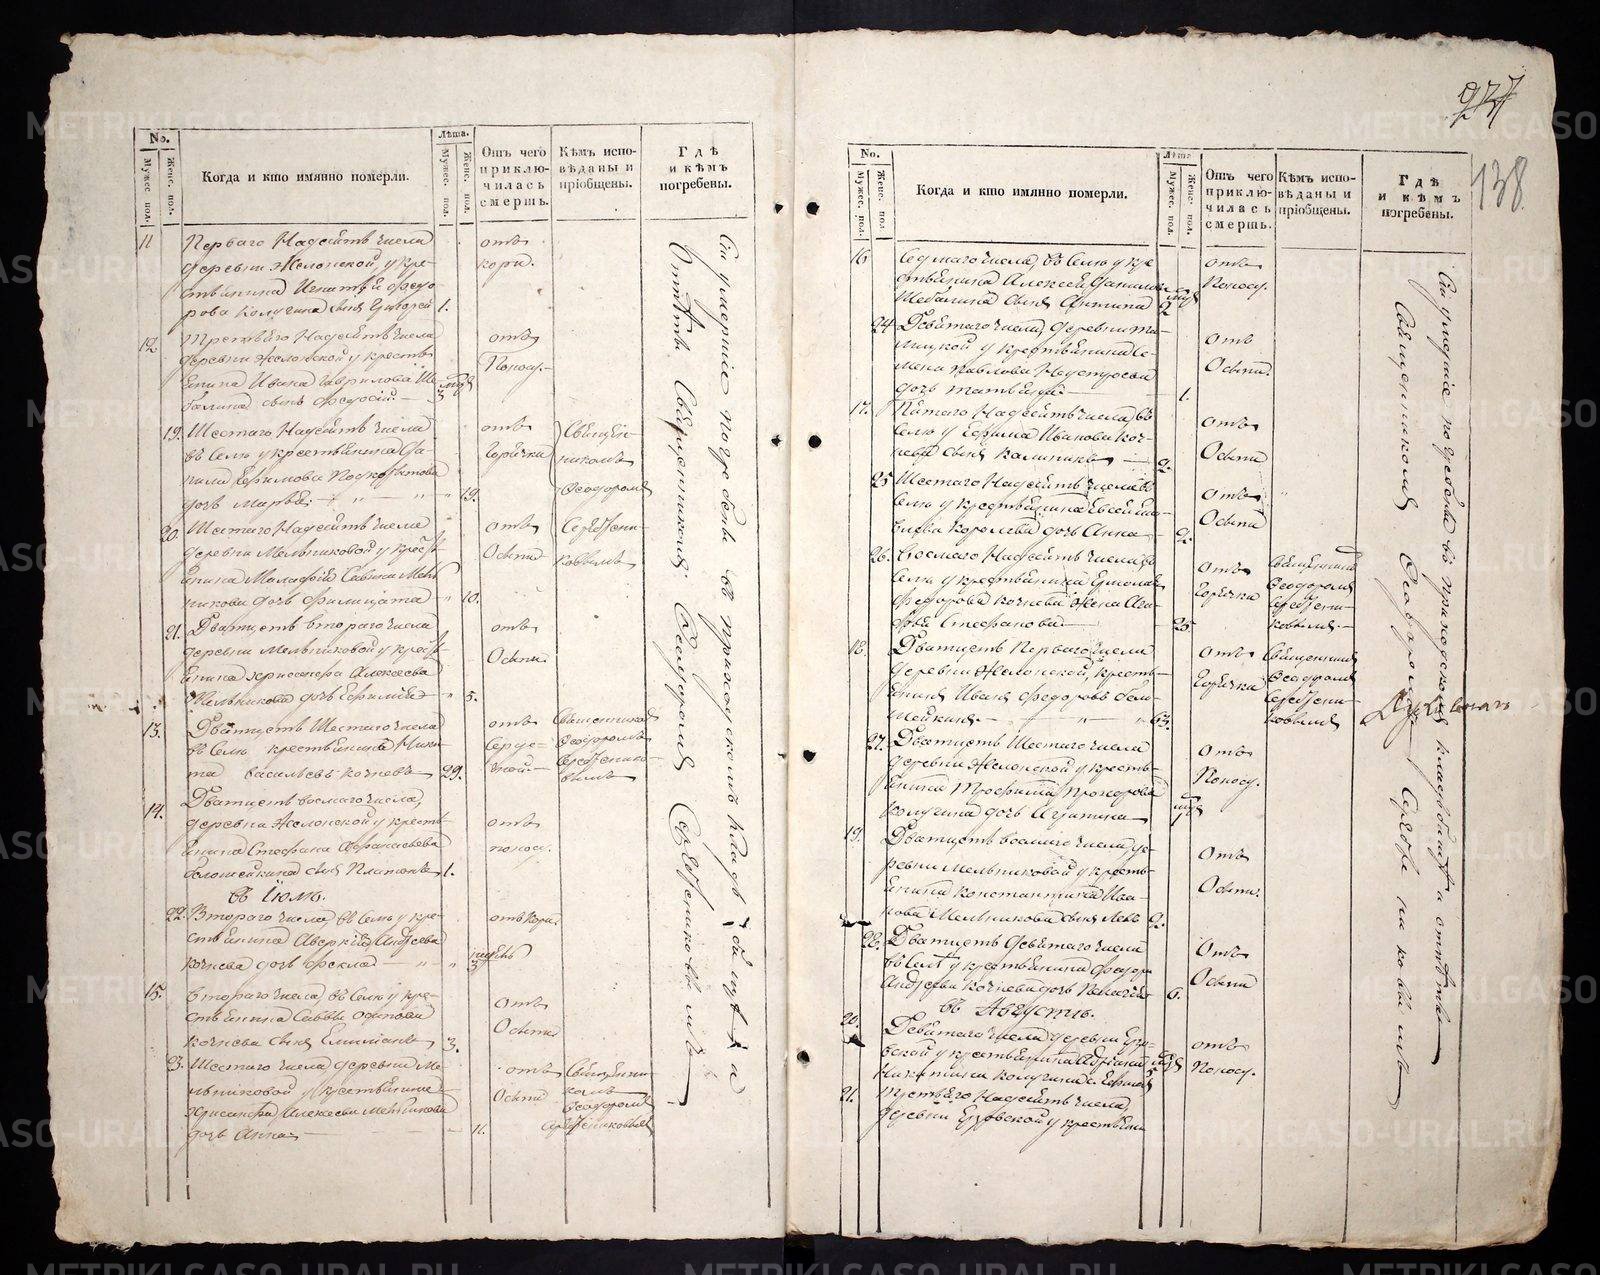 No.
Мужес. пол.
Женс. пол.
Когда и кто имянно померли.
Лѣта.
Мужес. пол.
Женс. пол.
Отъ чего
приклю-
чилась
смерть.
Кѣмъ испо-
вѣданы и
прїобщены.
Гдѣ
и кѣмъ
погребены.
11
Перваго Надесять числа
деревни Жслонской у кре-
стьянина Игнатія Федо
рова Колугина сынъ Григорей 1.
отъ
кори.
12
Третьяго Надесять числа
деревни Жслонской у кресть
янина Ивана Гаврилова Ше
балина сынъ Федосій. 3
отъ
Поносу.
19.
Шестаго Надесять числа
въ Селѣ у крестьянина Да-
нила Ефимова
дочь Марья. 19.
отъ
Горячки
Священ-
никомъ
Феодоромъ
20.
Шестаго Надесять числа
деревни Мельниковой у крест
янина Малафія Савина Мель
никова дочь Филицата 10.
отъ
Оспы
Серебрени-
ковымъ
21.
Дватцеть втораго числа
деревни Мельниковой у крест
янина Хрисанфа Алексѣева
Мельникова дочь Ефимія 5.
отъ
Оспы
13.
Дватцеть Шестаго числа
въ Селѣ крестьянинъ Ники-
та Васильевъ Кочневъ 29.
отъ
Священникомъ
Феодоромъ
14.
Дватцеть восмаго числа,
деревни Жслонской у кресть
янина Стефана Афанасьева
Белошейкина сынъ Платонъ 1.
отъ
поносу.
въ Іюлѣ.
22.
Втораго числа, въ Селѣ у кре-
стьянина Аверкія Андреева
Кочнева дочь Фекла 3
отъ кори.
15.
Втораго числа, въ Селѣ у кре-
стьянина Саввы Осипова
Кочнева сынъ Емиліанъ 3.
отъ
Оспы
23.
Шестаго числа деревни Ме-
льниковой у крестьянина
Хрисанфа Алексѣева Мельникова
дочь Анна 11.
отъ
Оспы
Священни-
комъ
Феодоромъ
Серебрениковымъ
Сіи умершіе погребены въ приходскомъ кладбищѣ и
отпѣты Священникомъ Феодоромъ Серебрениковымъ
277
438.
No.
Мужес. пол.
Женс. пол.
Когда и кто имянно померли.
Лѣта
Мужес. пол.
Женс. пол.
Отъ чего
приклю-
чилась
смерть.
Кѣмъ испо-
вѣданы и
прїобщены.
Гдѣ
и кѣмъ
погребены.
16
Седмаго числа, въ Селѣ у кре
стьянина Алексѣя Данилова
Шебалина сынъ Антипа 2
отъ
Поносу.
24
Девятаго числа, деревни
у крестьянина Се-
мена Павлова
дочь Татьяна 1.
отъ
Оспы.
17.
Пятаго Надесять числа, въ
Селѣ у Ефима Иванова Коч-
нева сынъ Калиникъ 2.
отъ
Оспы
25
Шестаго Надесять числа въ
Селѣ у крестьянина Евсея
Королева дочь Анна 2.
отъ
Оспы
26.
Восмаго Надесять числа, въ
Селѣ у крестьянина Ермолая
Федорова Кочнева жена Ага-
фья Стефанова 25.
отъ
Горячки
Священникомъ
Феодоромъ
Серебрени-
ковымъ
18.
Дватцеть Перваго числа
деревни Жслонской, кресть-
янинъ Иванъ Федоровъ Бело-
шейкинъ 63.
отъ
Горячки
Священникомъ
Феодоромъ
Серебрени-
ковымъ
27.
Дватцеть Шестаго числа
деревни Жслонской у кресть-
янина Трофима Прохорова
Колугина дочь Агрипина 1
отъ
Поносу.
19.
Дватцеть восмаго числа, де-
ревни Мельниковой у кресть-
янина Константина Ива-
нова Мельникова сынъ Левъ 2.
отъ
Оспы.
28.
Дватцеть девятаго числа
въ Селѣ у крестьянина Федора
Андреева Кочнева дочь Пелагія 6.
отъ
Оспы
въ Августѣ.
20.
Девятаго числа, деревни Ерзо-
вской у крестьянина Адріана
Никитина Колугина с. Ефимъ 5
отъ
Поносу.
21.
Третьяго Надесять числа,
деревни Ерзовской у крестьяни
Сіи умершіе погребены въ приходскомъ кладбищѣ и отпѣты
Священникомъ Феодоромъ Серебрениковымъ